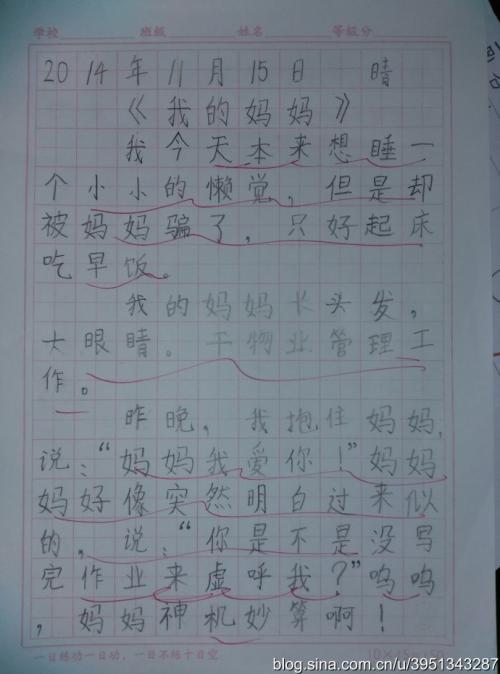 学校 班级 姓名 等级分
2014年11月15日 晴
《我的妈妈》
我今天本来想睡一
个小小的懒觉，但是却
被妈妈骗了，只好起床
吃早饭。
我的妈妈长头发，
大眼睛。干物业管理工
作。
昨晚，我抱住妈妈，
说：“妈妈我爱你！”妈妈
妈好像突然明白过来似
的，说：“你是不是没写
完作业来虚呼我？”呜呜
，妈妈神机妙算啊！
一日练功一日功，一日不练十日空
10×15=150
blog.sina.com.cn/u/3951343287